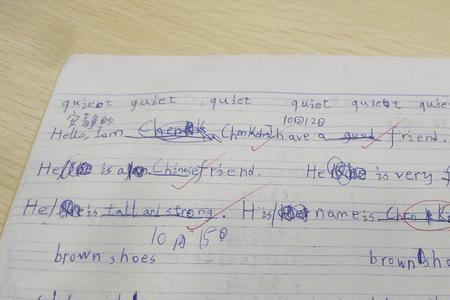 quieot quiet quiet quiet quiebt quie
安静的 10月12日
Hello, I am Chen K Chen I have a good friend.
He is a Chinese friend. He is very
He/ is tall and strong. His/ name is Chen K
10月15日
brown shoes brown sho